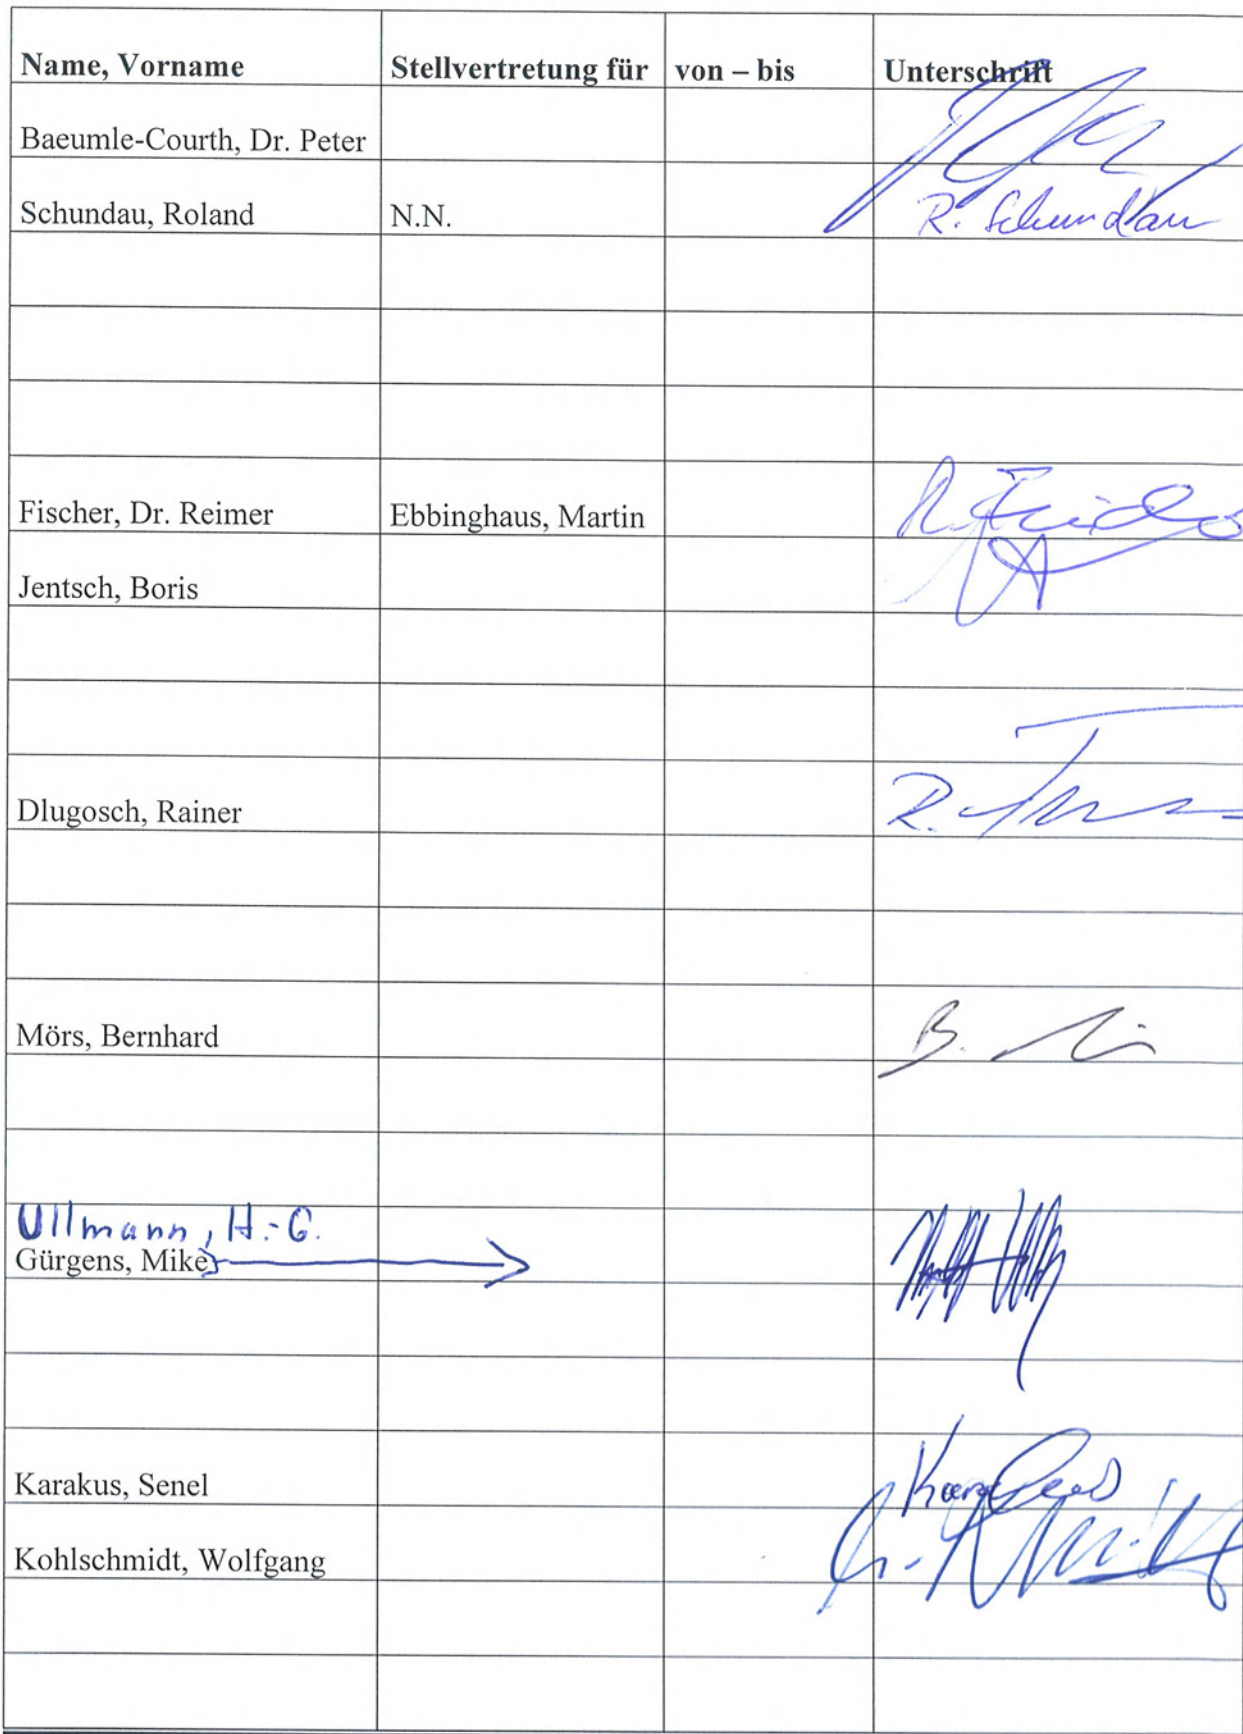 Name, Vorname Stellvertretung für von – bis Unterschrift
Baeumle-Courth, Dr. Peter
Schundau, Roland N.N. R. Schundau
Fischer, Dr. Reimer Ebbinghaus, Martin
Jentsch, Boris
Dlugosch, Rainer R.
Mörs, Bernhard B.
Ullmann, H.-G.
Gürgens, Mike
Karakus, Senel
Kohlschmidt, Wolfgang